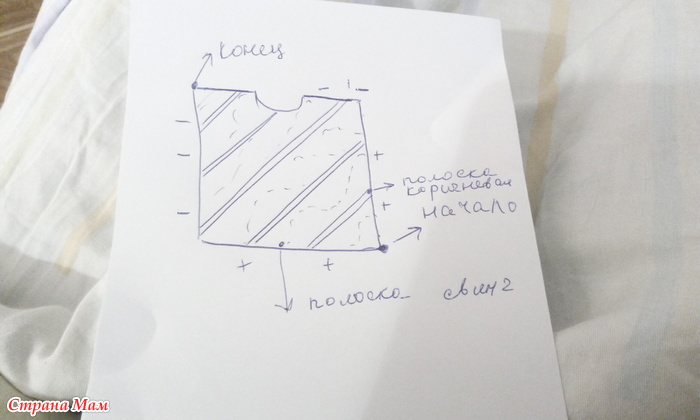 конец
− + −
−
−
+
полоска
коричневая
+
начало
−
+ +
полоска свинг
Страна Мам